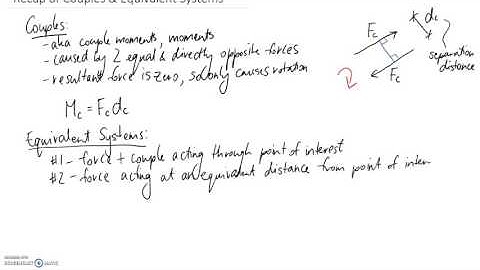 Recap of Couples & Equivalent Systems
Couples:
- aka couple moments, moments
- caused by 2 equal & directly opposite forces
- resultant force is zero, so only causes rotation
Mc = Fcdc
Fc
dc
separation
distance
Fc
Equivalent Systems:
#1 - force + couple acting through point of interest
#2 - force acting at an equivalent distance from point of inter